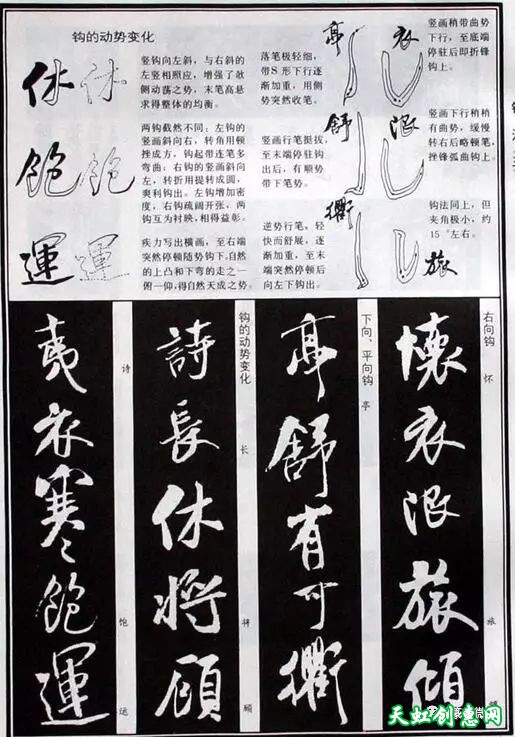 钩的动势变化
休
竖钩向左斜，与右斜的
左竖相照应，增强了欹
侧动荡之势，末笔高悬
求得整体的均衡。
飽
两钩截然不同：左钩的
竖画斜向右，转角用顿
挫成方，钩起带连笔多
弯曲；右钩的竖画斜向
左，转折用提转成圆，
爽利钩出。左钩增加密
度，右钩疏阔开张，两
钩互为衬映，相得益彰。
運
疾力写出横画，至右端
突然停顿随势钩下，自然
的上凸和下弯的走之一
俯一仰，得自然天成之势。
亭
落笔极轻细，
带S形下行逐
渐加重，用侧
势突然收笔。
舒
竖画行笔挺拔，
至末端停驻钩
出后，有顺势
带下笔势。
衢
逆势行笔，轻
快而舒展，逐
渐加重，至末
端突然停顿后
向左下钩出。
衣
竖画稍带曲势
下行，至底端
停驻后即折锋
钩上。
浪
竖画下行稍稍
有曲势，缓慢
转右后略顿笔，
挫锋弧曲钩上。
旅
钩法同上，但
夹角极小，约
15°左右。
右向钩 怀 旅
懷衣浪旅傾
下向、平向钩 亭
亭舒有可衢
钩的动势变化 长 将 顾
詩長休將顧
诗 饱 运
夷衣寒飽運
天虹创意网